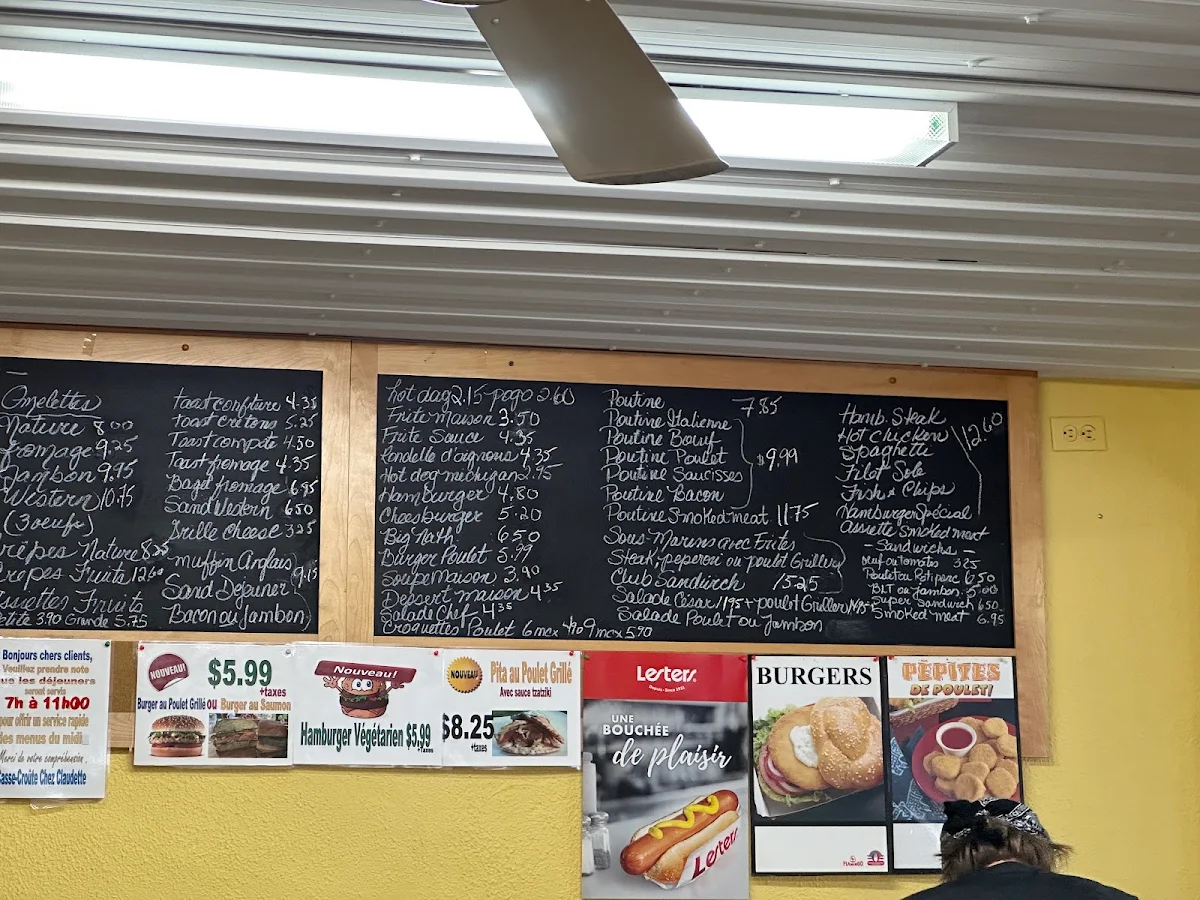 Omelettes
Nature 8.00
fromage 9.25
Jambon 9.95
Western 10.75
(3 oeufs)
Crêpes Nature 8.25
Crepes Fruits 12.60
Assiettes Fruits
Petite 3.90 Grande 5.75
Toast confiture 4.35
Toast cretons 5.25
Toast compote 4.50
Toast fromage 4.35
Bagel fromage 6.95
Sand Western 6.50
Grille Cheese 3.25
muffin Anglais
Sand Dejeuner 9.15
Bacon ou Jambon
hot dog 2.15 - pogo 2.60
Frite maison 3.50
Frite Sauce 4.35
Rondelle d'oignons 4.35
Hot dog michigan 2.95
Hamburger 4.80
Cheesburger 5.20
Big Nath 6.50
Burger Poulet 5.99
Soupe maison 3.90
Dessert maison 4.35
Salade Chef 4.35
Croquettes Poulet 6 mcx 4.70 9 mcx 5.90
Poutine 7.85
Poutine Italienne
Poutine Bœuf
Poutine Poulet $9.99
Poutine Saucisses
Poutine Bacon
Poutine Smoked meat 11.75
Sous-Marins avec Frites
Steak, peperoni ou poulet Griller
Club Sandwich 15.25
Salade César 11.95 + poulet Griller
Salade Poulet ou Jambon
Hamb. Steak
Hot Chicken 12.60
Spaghetti
Filet Sole
Fish & Chips
Hamburger Spécial
Assiette Smoked meat
- Sandwichs -
oeuf ou tomates 3.25
Poulet ou Roti porc 6.50
BLT ou Jambon. 5.00
Super Sandwich 6.50
Smoked meat 6.95
Bonjours chers clients,
Veuillez prendre note
que les déjeuners
seront servis
7h à 11h00
pour offrir un service rapide
des menus du midi
Merci de votre compréhension,
Casse-Croûte Chez Claudette
NOUVEAU!
$5.99
+taxes
Burger au Poulet Grillé ou Burger au Saumon
Nouveau!
Hamburger Végétarien $5.99
+Taxes
NOUVEAU
Pita au Poulet Grillé
Avec sauce tzatziki
$8.25
+taxes
Lesters
Depuis 1931
UNE
BOUCHÉE
de plaisir
Lesters
BURGERS
PÉPITES
DE POULET!